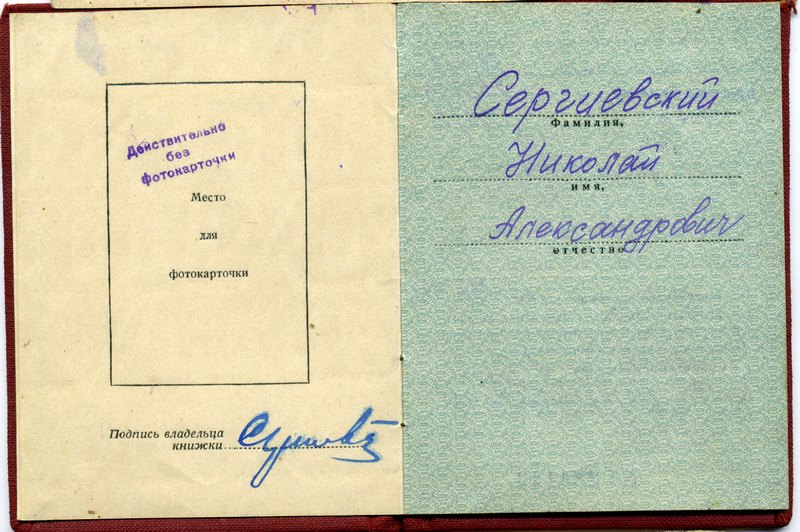 Действительно
без
фотокарточки
Место
для
фотокарточки
Подпись владельца
книжки
Сергиевский
Фамилия,
Николай
имя,
Александрович
отчество